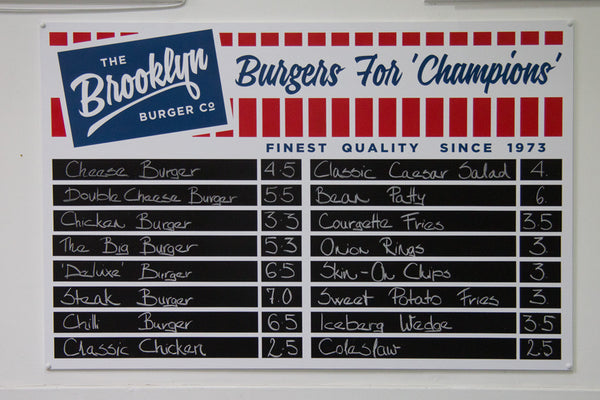 THE
Brooklyn
BURGER Co
Burgers For 'Champions'
FINEST QUALITY SINCE 1973
Cheese Burger 4.5
Double Cheese Burger 5.5
Chicken Burger 3.5
The Big Burger 5.3
'Deluxe' Burger 6.5
Steak Burger 7.0
Chilli Burger 6.5
Classic Chicken 2.5
Classic Caesar Salad 4.
Bean Patty 6.
Courgette Fries 3.5
Onion Rings 3.
Skin-On Chips 3.
Sweet Potato Fries 3.
Iceberg Wedge 3.5
Coleslaw 2.5